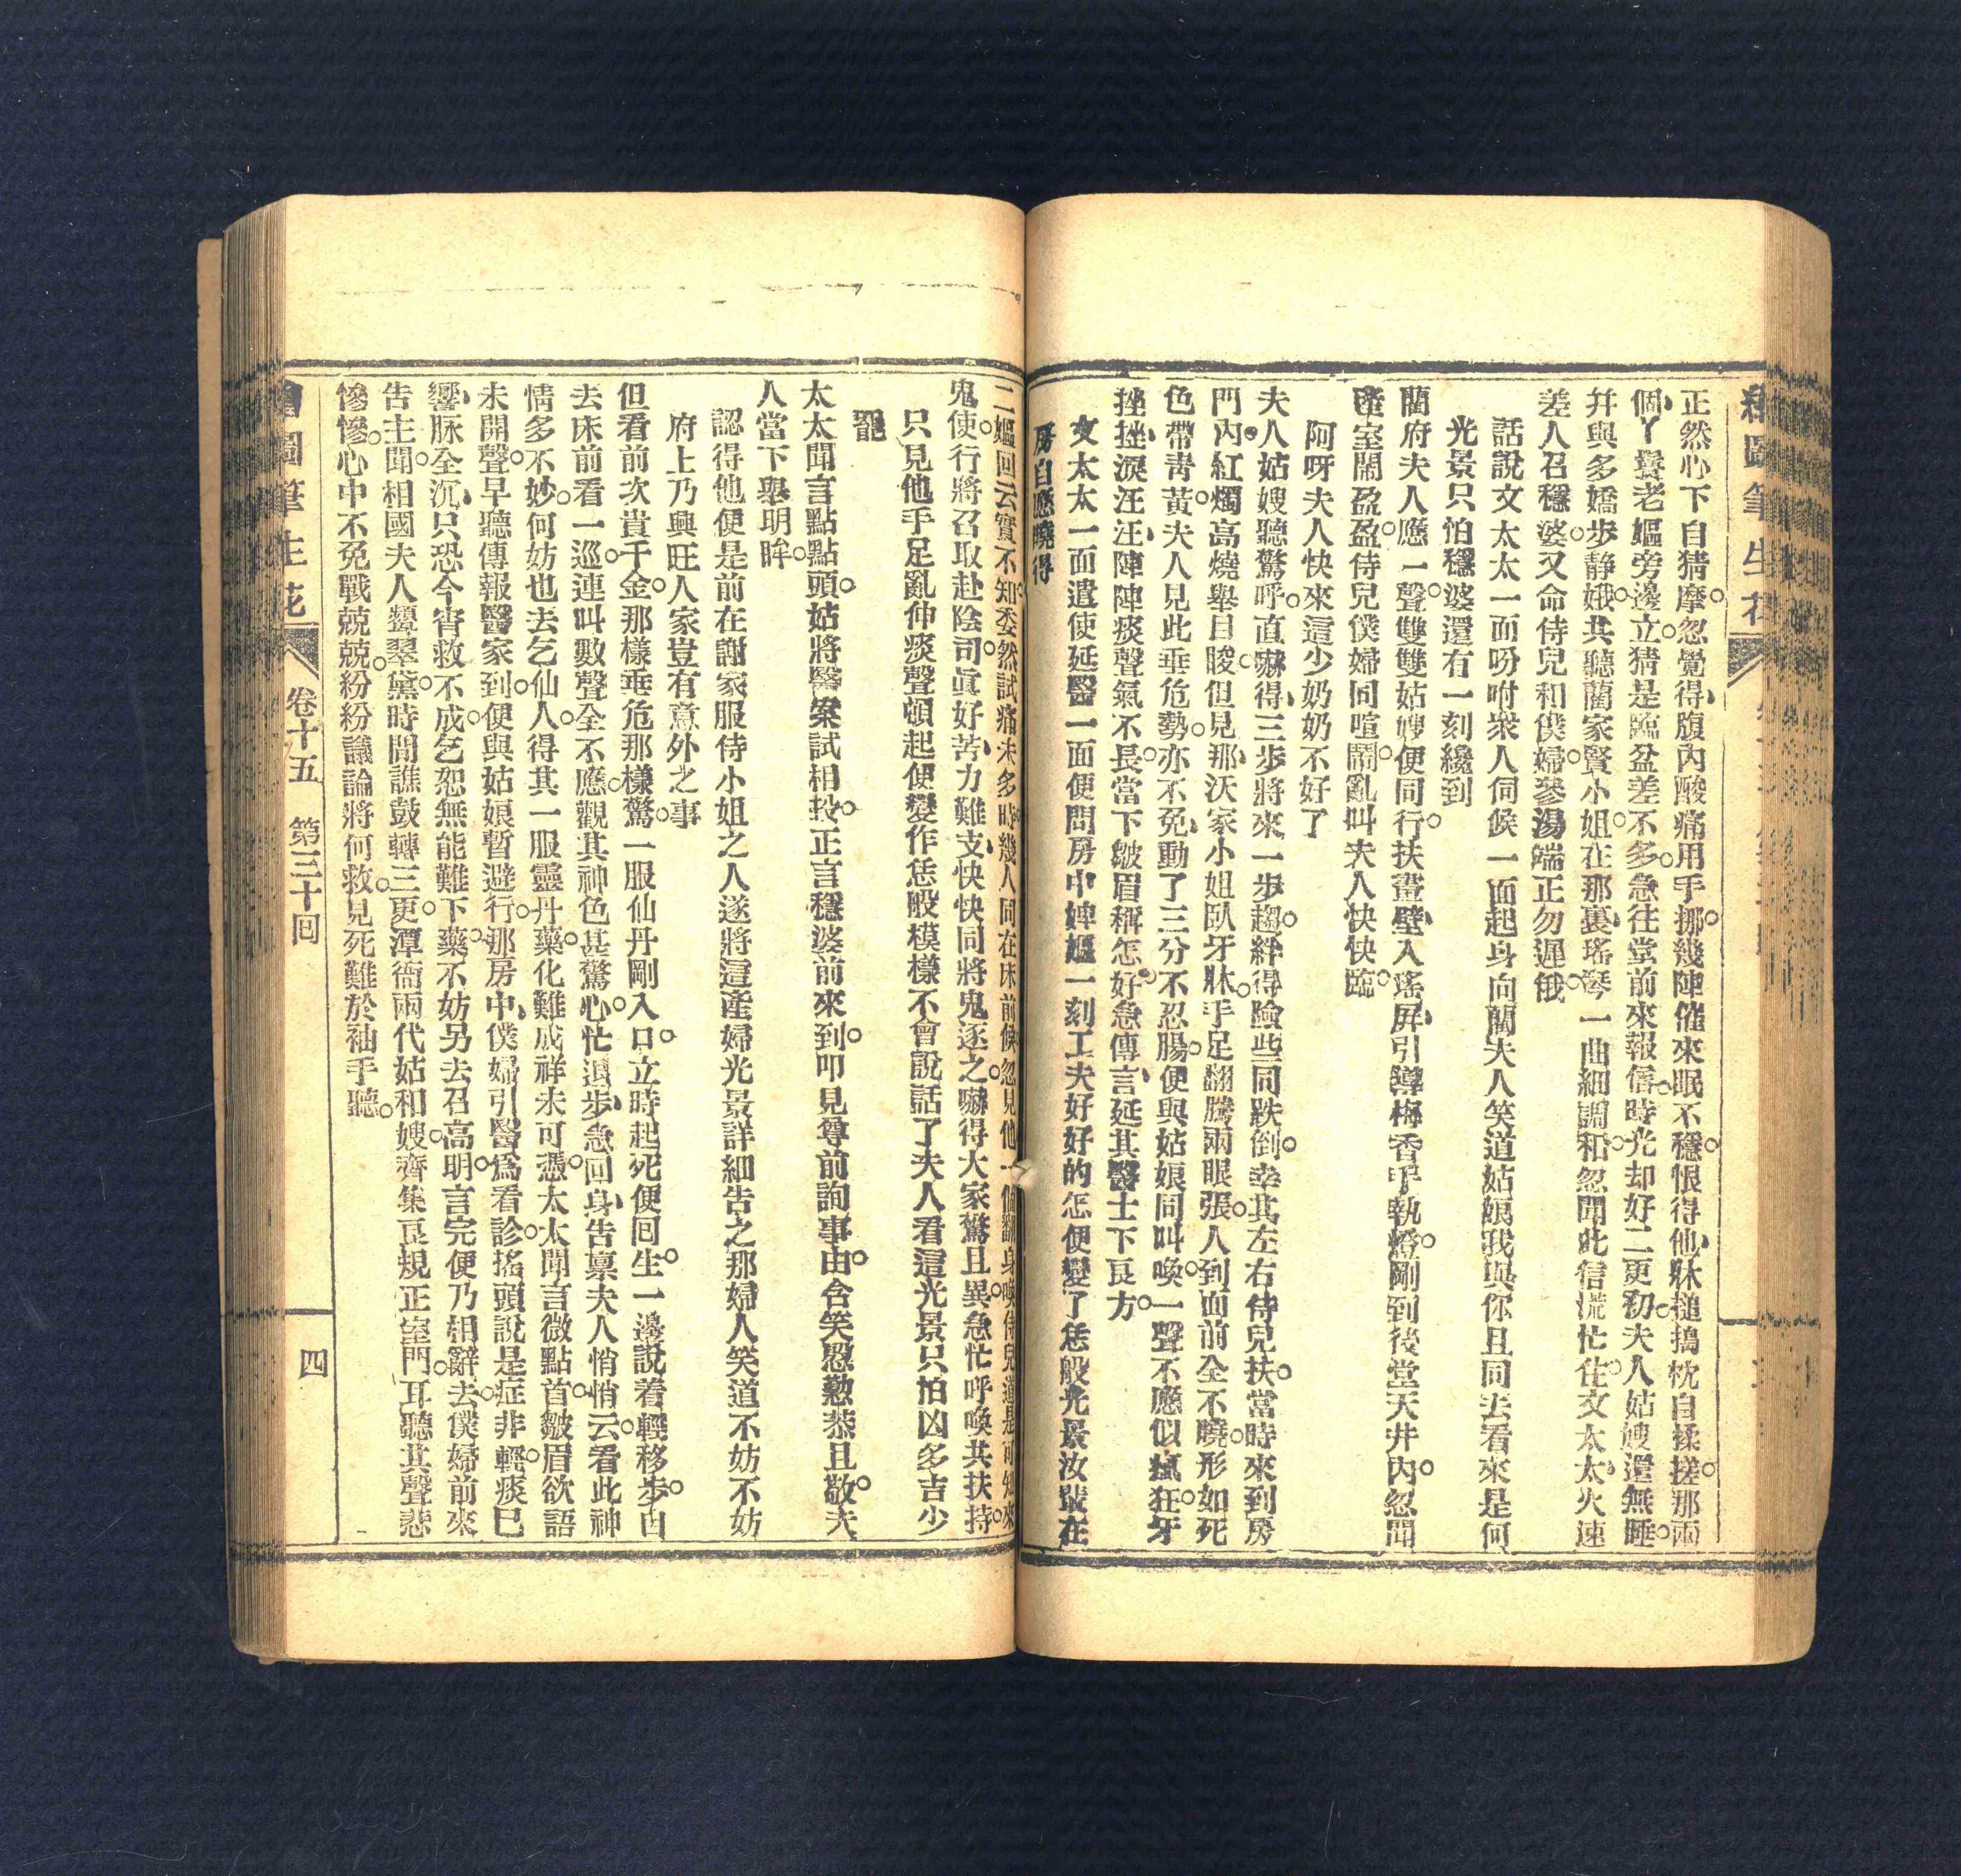 正然心下自猜摩。忽覺得腹內酸痛用手挪。幾陣催來眠不穩。恨得他牀搥搗枕自揉搓。那兩
個丫鬟老嫗旁邊立。猜是臨盆差不多。急往堂前來報信。時光却好二更初。夫人姑嫂還無睡。
幷與多嬌步靜娥。共聽藺家賢小姐。在那裏瑤琴一曲細調和。忽聞此信慌忙住。文太太火速
差人召穩婆。又命侍兒和僕婦。參湯端正勿遲俄。
話說文太太一面吩咐衆人伺候一面起身向藺夫人笑道姑娘我與你且同去看來是何
光景只怕穩婆還有一刻纔到
藺府夫人應一聲。雙雙姑嫂便同行。扶畫壁入瑤屏。引導梅香手執燈。剛到後堂天井內。忽聞
產室鬧盈盈。侍兒僕婦同喧鬧。亂叫夫人快快臨。
阿呀夫人快來這少奶奶不好了
夫人姑嫂聽驚呼。直嚇得三步將來一步趨。絆得險些同跌倒。幸其左右侍兒扶。當時來到房
門內。紅燭高燒舉目睃。但見那沃家小姐臥牙牀。手足翻騰兩眼張。人到面前全不曉。形如死
色帶靑黃。夫人見此垂危勢。亦不免動了三分不忍腸。便與姑娘同叫喚。一聲不應似瘋狂。牙
挫挫淚汪汪陣陣痰聲氣不長。當下皺眉稱怎好。急傳言延其醫士下良方。
文太太一面遣使延醫一面便問房中婢嫗一刻工夫好好的怎便變了恁般光景汝輩在
房自應曉得
二嫗回云實不知。委然試痛未多時。幾人同在床前候。忽見他一個翻身喚侍兒。道是可知來
鬼使。行將召取赴陰司。眞好苦力難支快快同將鬼逐之。嚇得大家驚且異。急忙呼喚共扶持。
只見他手足亂伸痰聲頓起便變作恁般模樣不會說話了夫人看這光景只怕凶多吉少
罷
太太聞言點點頭。姑將醫案試相投。正言穩婆前來到。叩見尊前詢事由。含笑慇懃恭且敬。夫
人當下舉明眸。
認得他便是前在謝家服侍小姐之人遂將這產婦光景詳細告之那婦人笑道不妨不妨
府上乃興旺人家豈有意外之事
但看前次貴千金。那樣垂危那樣驚。一服仙丹剛入口。立時起死便回生。一邊說着輕移步。自
去床前看一巡。連叫數聲全不應。觀其神色甚驚心。忙退步急回身告禀夫人悄悄云。看此神
情多不妙。何妨也去乞仙人。得其一服靈丹藥。化難成祥未可憑。太太聞言微點首。皺眉欲語
未開聲。早聽傳報醫家到。便與姑娘暫避行。那房中僕婦引醫爲看診。搖頭說是症非輕。痰已
響脉全沉只恐今宵救不成。乞恕無能難下藥。不妨另去召高明。言完便乃相辭去。僕婦前來
告主聞。相國夫人顰翠黛。時間譙鼓轉三更。潭衙兩代姑和嫂。齊集良規正室門。耳聽其聲悲
慘慘。心中不免戰兢兢。紛紛議論將何救。見死難於袖手聽。
繪圖筆生花
卷十五　第三十回
四